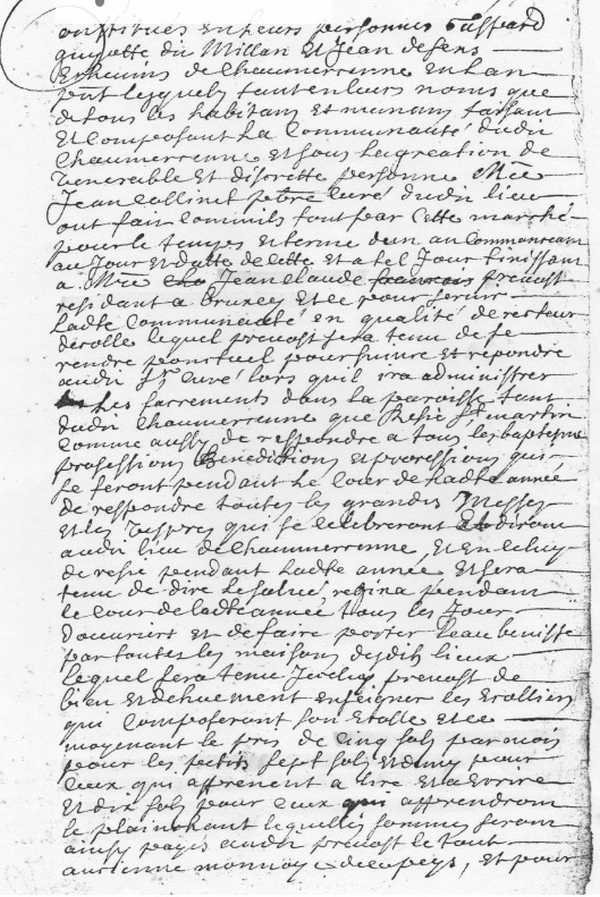 constitues en leurs personnes Gaspard
guyotte du Millan et Jean de sens
Echevins de Chaumercenne en l'an
pnt lesquels tant en leurs noms que
de tous les habitans et manans faisant
et composant la Communauté dudit
Chaumercenne et sous lagreation de
venerable et discrette personne Mre
Jean Collinet pbre curé dudit lieu
ont fait commils font par cette marché
pour le temps et terme dun an Commenceant
au Jour et datte de cette et a tel Jour finissant
a Mre Jean claude francois prevost
residant a bruxey et ce pour servir
ladte Communauté en qualité de recteur
decolle lequel prevost sera tenu de se
rendre ponctuel poursuivre et répondre
audit Sr Curé lors quil ira administrer
Les sacrements dans la paroisse tant
dudit Chaumercenne que Resie St martin
Comme aussy de respondre a tous les baptesme
professions Benedictions et processions qui
se feront pendant le Cour de ladte année
de respondre toutes les grandes Messes
et les Vespres qui se celebreront et diront
audit lieu de Chaumercenne, et en celuy
de resie pendant ladte année et sera
tenu de dire le salue regina pendant
le Cour de ladte année tous les Jour
douvriers et de faire porter leau benisse
par toutes les maisons desdits lieux
lequel sera tenu Icelluy prevost de
bien et dehuement enseigner les Ecolliers
qui Composeront son Ecolle et ce
moyenant le pris de Cinq sols parmois
pour les petits sept sols et demy pour
Ceux qui apprenent a lire et a Ecrire
et dix sols pour Ceux qui apprendront
le plainchant lequelles sommes seront
ainsy payés audit prevost le tout
ancienne monnoye de ce peys, et pour